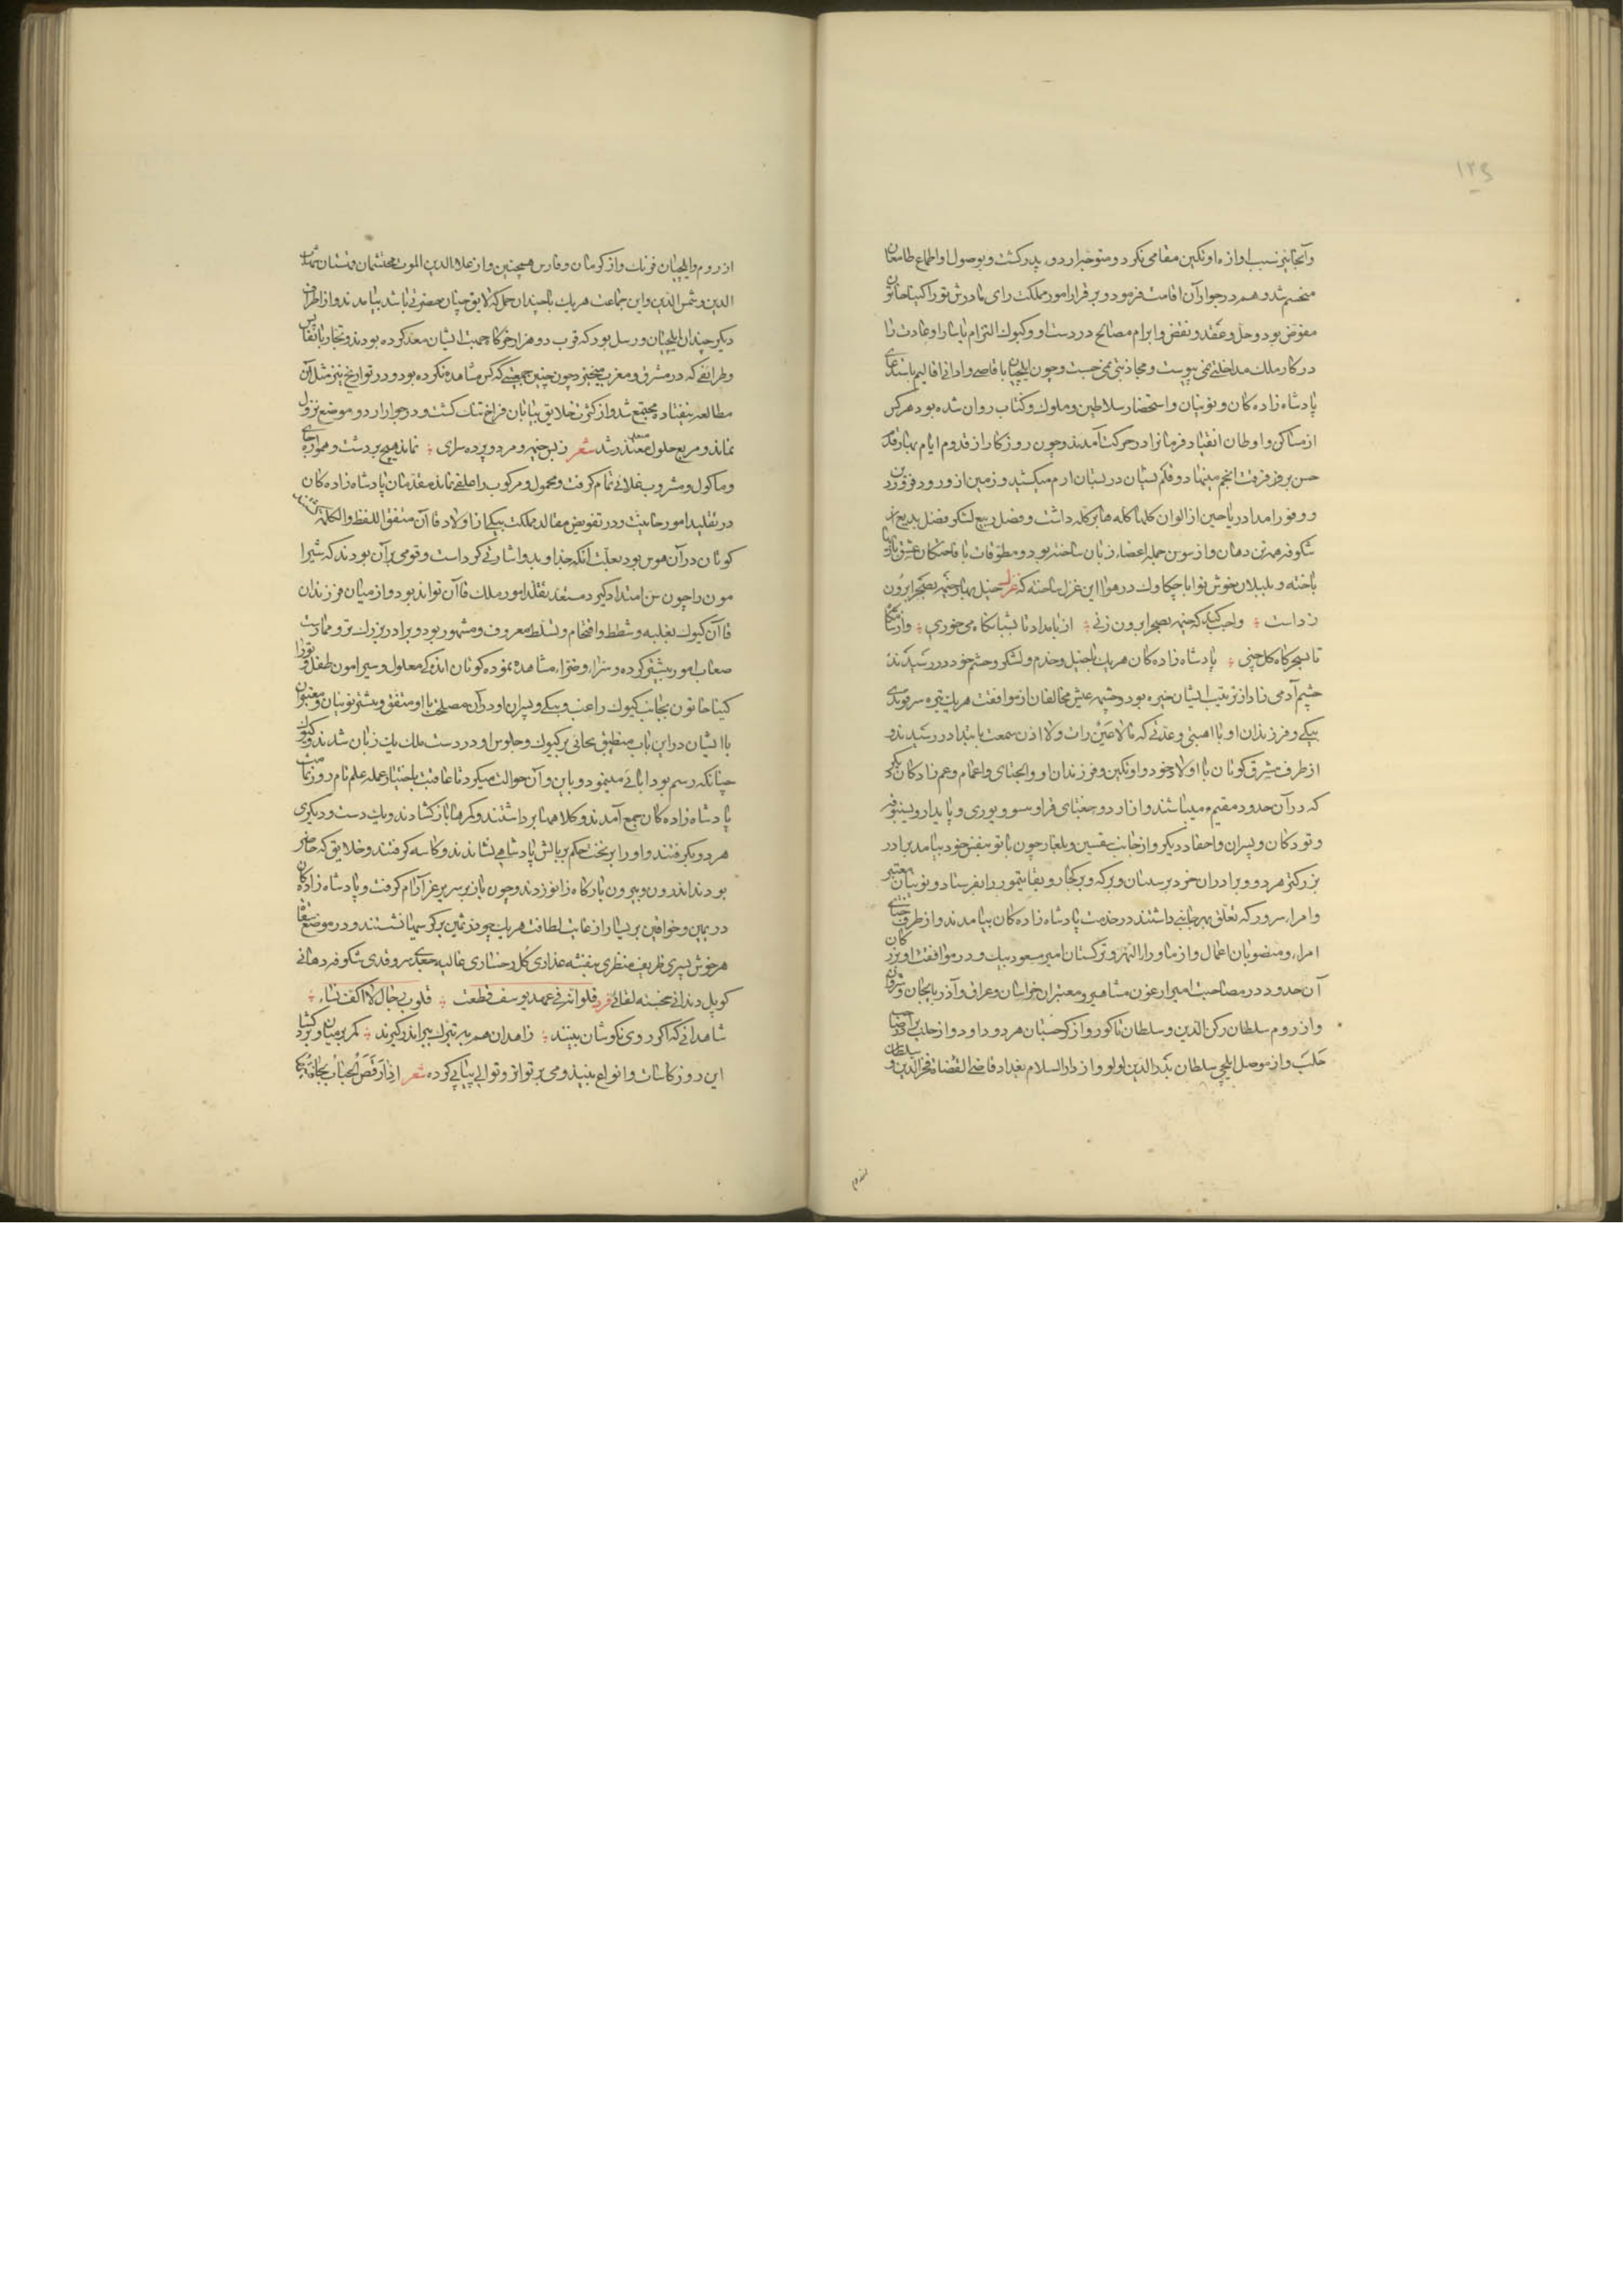 ۱۲۶
وآنجا نیز نسب اوازه اوتکین مقامی نکرد و متوجه اردو پدر کشت و بوصول او اطماع طامعان
منحسم شد و هم در جوار آن اقامت فرمود و بر قرار امور مملکت رای مادرش توراکینا خاتون
مفوض بود و حل و عقد و نقض و ابرام مصالح در دست او و کیوک التزام یاسا و عادت را
در کار ملک مداخلتی نمی پیوست و مجاذبتی نمی جست و چون ایلچیان باقاصی و ادانی اقالیم باستدعای
پادشاه زاده کان و نوینان و استحضار سلاطین و ملوک و کتاب روان شده بود هر کس
از مساکن و اوطان انقیاد فرمانرا در حرکت آمدند و چون روزکار از قدوم ایام بهار قدم
حسن بر فرق فرقت انجم مینهاد و قلم نسیان در بستان ارم میکشید و زمین از ورود فروردین
و وفور امداد ریاحین از الوان کلها کله ها بر کله داشت و فصل ربیع لشکر فضل بدیع از
شکوفه همه تن دهان و از سوسن جمله اعضا زبان ساخته بود و مطوقات با فاختکان عشق بازیها
باخته و بلبلان خوش نوا با چکاوک در هوا این غزل ساخته که غزل خیل بهار خیمه بصحرا برون
زداست ؛ واجب کند که خیمه بصحرا برون زنی ؛ از بامداد تا بشبانکاه می خوری ؛ وز شامکاه
تا بسحرکاه کل چنی ؛ پادشاه زاده کان هر یک با خیل و خدم و لشکر و حشم خود در رسیدند
چشم آدمی زاد از ترتیب ایشان خیره بود و چشمه عیش مخالفان از موافقت هر یک تیره سرقوتی
بیکی و فرزندان او با اهبتی و عدتی که مالا عین رات ولا اذن سمعت بابتدا در رسیدند و
از طرف مشرق کوتان با اولاد خود و اوتکین و فرزندان او و الجتای و اعمام و عم زادکان دیکر
که در آن حدود مقیم میباشند و از اردو جغتای قرا و یسو و بوری و بایدار و یسنبوقه
و تودکان و پسران و احفاد دیکر و از جانب سقسین و بلغار چون باتو بنفس خود نیامد برادر
بزرکتر هردو و برادران خرد برسسان و برکه و برکجار و بقاتیمور را بفرستاد و نوینان معتبر
و امرا سرور که تعلق بهر جانبی داشتند در خدمت پادشاه زاده کان بیامدند و از طرف ختای
امرا و منصوبان اعمال و از ماوراالنهر و ترکستان امیر مسعود بیک و در موافقت او بزرکان
آن حدود در مصاحبت امیر ارغون مشاهیر و معتبران خراسان و عراق و آذربایجان و شروان
و از روم سلطان رکن الدین و سلطان تاکور و از کرجستان هر دو داود و از حلب برادر صاحب
حلب و از موصل ایلچی سلطان بدرالدین لولو و از دارالسلام بغداد قاضی القضاة فخرالدین و سلطان
از روم و ایلچیان فرنک و از کرمان و فارس همچنین و از علاالدین الموت محتشمان قهستان شهاب
الدین و شمس الدین و این جماعت هر یک با چندان حمل که لایق چنان حضرتی باشد بیامدند و از اطراف
دیکر چندان ایلچیان و رسل بود که قرب دو هزار خرکا جهت ایشان معد کرده بودند و تجار با نفایس
و طرایفی که در مشرق و مغرب خیزد چون چنین جمعیتی که کس مشاهده نکرده بود و در تواریخ نیز مثل آن
مطالعه نیفتاده مجتمع شد و از کثرت خلایق بیابان فراخ تنک کشت و در جوار اردو موضع نزول
نماند و مربع حلول متعذر شد شعر ز بس خیمه و مرد و پرده سرای ؛ نماند هیچ بر دشت و هموار جای
و ماکول و مشروب غلائی تمام کرفت و محمول و مرکوب را علفی نماند مقدمان پادشاه زاده کان
در تقلید امور خانیت و در تفویض مقالد مملکت بیکی از اولاد قاآن متفق اللفظ والکلمه کشتند
کوتان در آن هوس بود بعلت آنکه جد او بدو اشارتی کرداست و قومی بر آن بودند که شیرا
مون را چون سن امتداد کیرد مستعد تقلد امور ملک قاآن تواند بود و از میان فرزندان
قاآن کیوک بغلبه و شطط و اقتحام و تسلط معروف و مشهور بود و برادر بزرک تر و ممارست
صعاب امور بیشتر کرده و سرا و ضرا مشاهده نموده کوتان اندکی معلول و سیرامون طفل و توراکینا
خاتون بجانب کیوک راغب و بیکی و پسران او در آن مصلحت با او متفق و بیشتر نوینان و معتبران
با ایشان در این باب منطبق خانی بر کیوک و جلوس او در دست ملک یک زبان شدند و کیوک
چنانکه رسم بود ابائی مینمود و باین و آن حوالت میکرد تا عاقبت باختیار عمله علم نام روز نیامت
پادشاه زاده کان جمع آمدند و کلاهها برداشتند و کمرها باز کشادند و یک دست و دیکری
هر دو بکرفتند و او را بر تخت حکم بر بالش پادشاهی نشاندند و کاسه کرفتند و خلایق که حاضر
بودند اندرون و بیرون بارکاه زانو زدند و چون باز بر سریر عز آرام کرفت و پادشاه زاده کان
در یمین و خواتین بر یسار از غایت لطافت هر یک چو در ثمین بر کرسیها نشستند و در موضع سقا
هر خوش پسری ظریف منظری بنفشه عذاری کل رخساری غالیه جعدی سرو قدی شکوفه دهانی
کوپل دندانی خجسته لقائی فرد فلو انه فی عهد یوسف قطعت ؛ قلوب رجال لا اکف نساء ؛
شاهدانی که اکر روی نکوشان بینند ؛ زاهدان هم به تبرک ببر اندر کیرند ؛ کمر بر میان و بر کشاد
این روز کاسات و انواع نبید و می بر تواز و توالی پیاپی کرده شعر اذا رقص الحباب بحافتیها